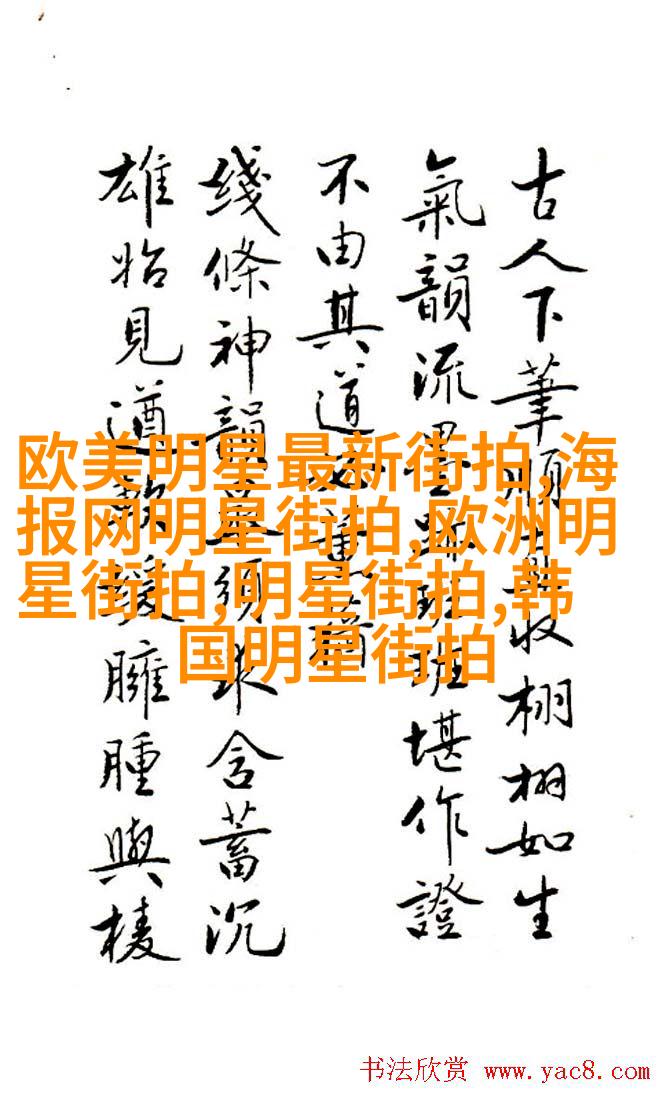 古人下筆順收栩栩如生
氣韻流墨班班堪作證
不由其道
綫條神韻須求含蓄沉
雄始見遒臃腫與棱
欧美明星最新街拍,海
报网明星街拍,欧洲明
星街拍,明星街拍,韩
国明星街拍
书法欣赏 www.yac8.com